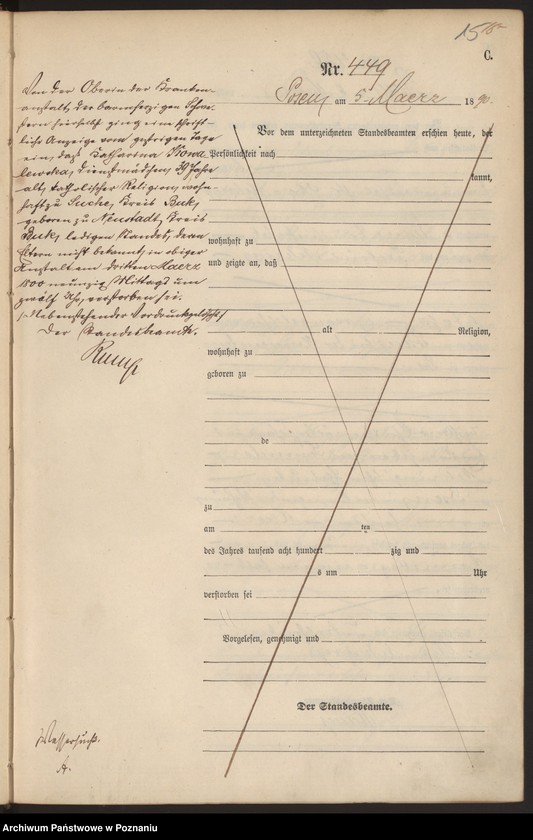 15
C.
Nr. 449
Posen am 5 Maerz 1890.
Von der Oberin der Kranken-
anstalt der barmherzigen Schwe-
stern hierselbst ging eine schrift-
liche Anzeige vom gestrigen Tage
ein, daß Katharina Kowa
lewska, Dienstmädchen, 39 Jahre
alt, katholischer Religion, wohn-
haft zu Kreis Buk,
geboren zu Neustadt, Kreis
Buk, ledigen Standes, deren
Eltern nicht bekannt, in obiger
Anstalt am dritten Maerz
1800 neunzig Mittags um
zwölf Uhr, verstorben sei.
/Nebenstehender Vordruck gelöscht/
Der Standesbeamte.
Vor dem unterzeichneten Standesbeamten erschien heute, der
Persönlichkeit nach
kannt,
wohnhaft zu
und zeigte an, daß
alt Religion,
wohnhaft zu
geboren zu
de
zu
am ten
des Jahres tausend acht hundert zig und
s um Uhr
verstorben sei
Vorgelesen, genehmigt und
Der Standesbeamte.
Wassersucht.
A.
Archiwum Państwowe w Poznaniu